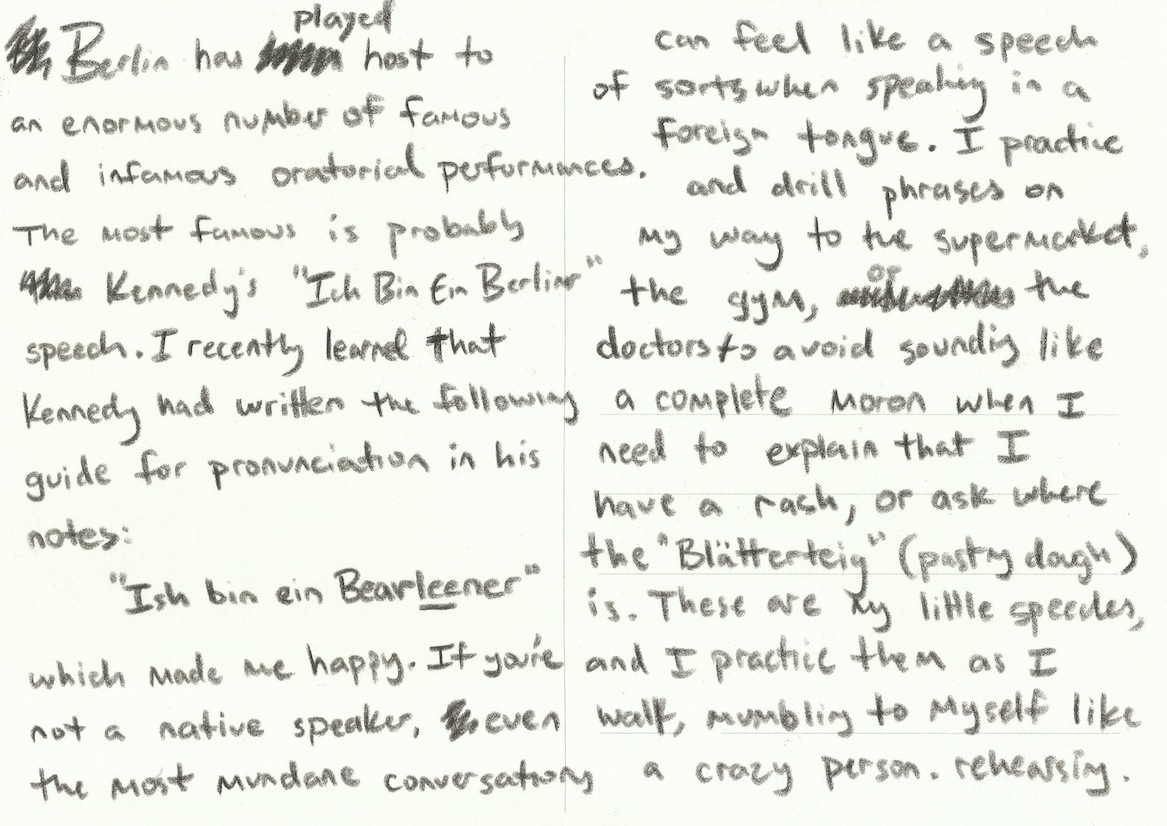 played
Berlin has host to
an enormous number of famous
and infamous oratorial performances.
The most famous is probably
Kennedy's "Ich Bin Ein Berliner"
speech. I recently learned that
Kennedy had written the following
guide for pronunciation in his
notes:
"Ish bin ein Bearleener"
which made me happy. If you're
not a native speaker, even
the most mundane conversations
can feel like a speech
of sorts when speaking in a
foreign tongue. I practice
and drill phrases on
my way to the supermarket,
or
the gym, the
doctors to avoid sounding like
a complete moron when I
need to explain that I
have a rash, or ask where
the "Blätterteig" (pastry dough)
is. These are my little speeches,
and I practice them as I
walk, mumbling to myself like
a crazy person. rehearsing.